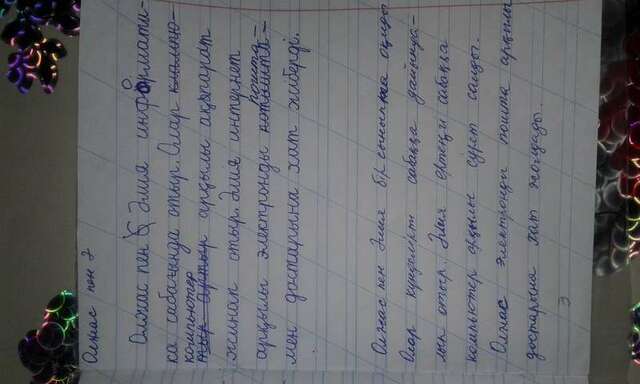 Олжас пен Ә
Олжас пен Әлия информати-
ка сабағында отыр. Олар
компьютер арқылы ақпарат
жинап отыр. Әлия интернет
арқылы электронды пошта-
мен достарына хат жіберді.
Олжас пен Әлия бір сыныпта оқиды
Олар күнделікті сабаққа дайында-
лып отыр. Әлия ертеңгі сабаққа
компьютер арқылы сурет салды.
Олжас электронды пошта арқылы
достарына хат жолдады.